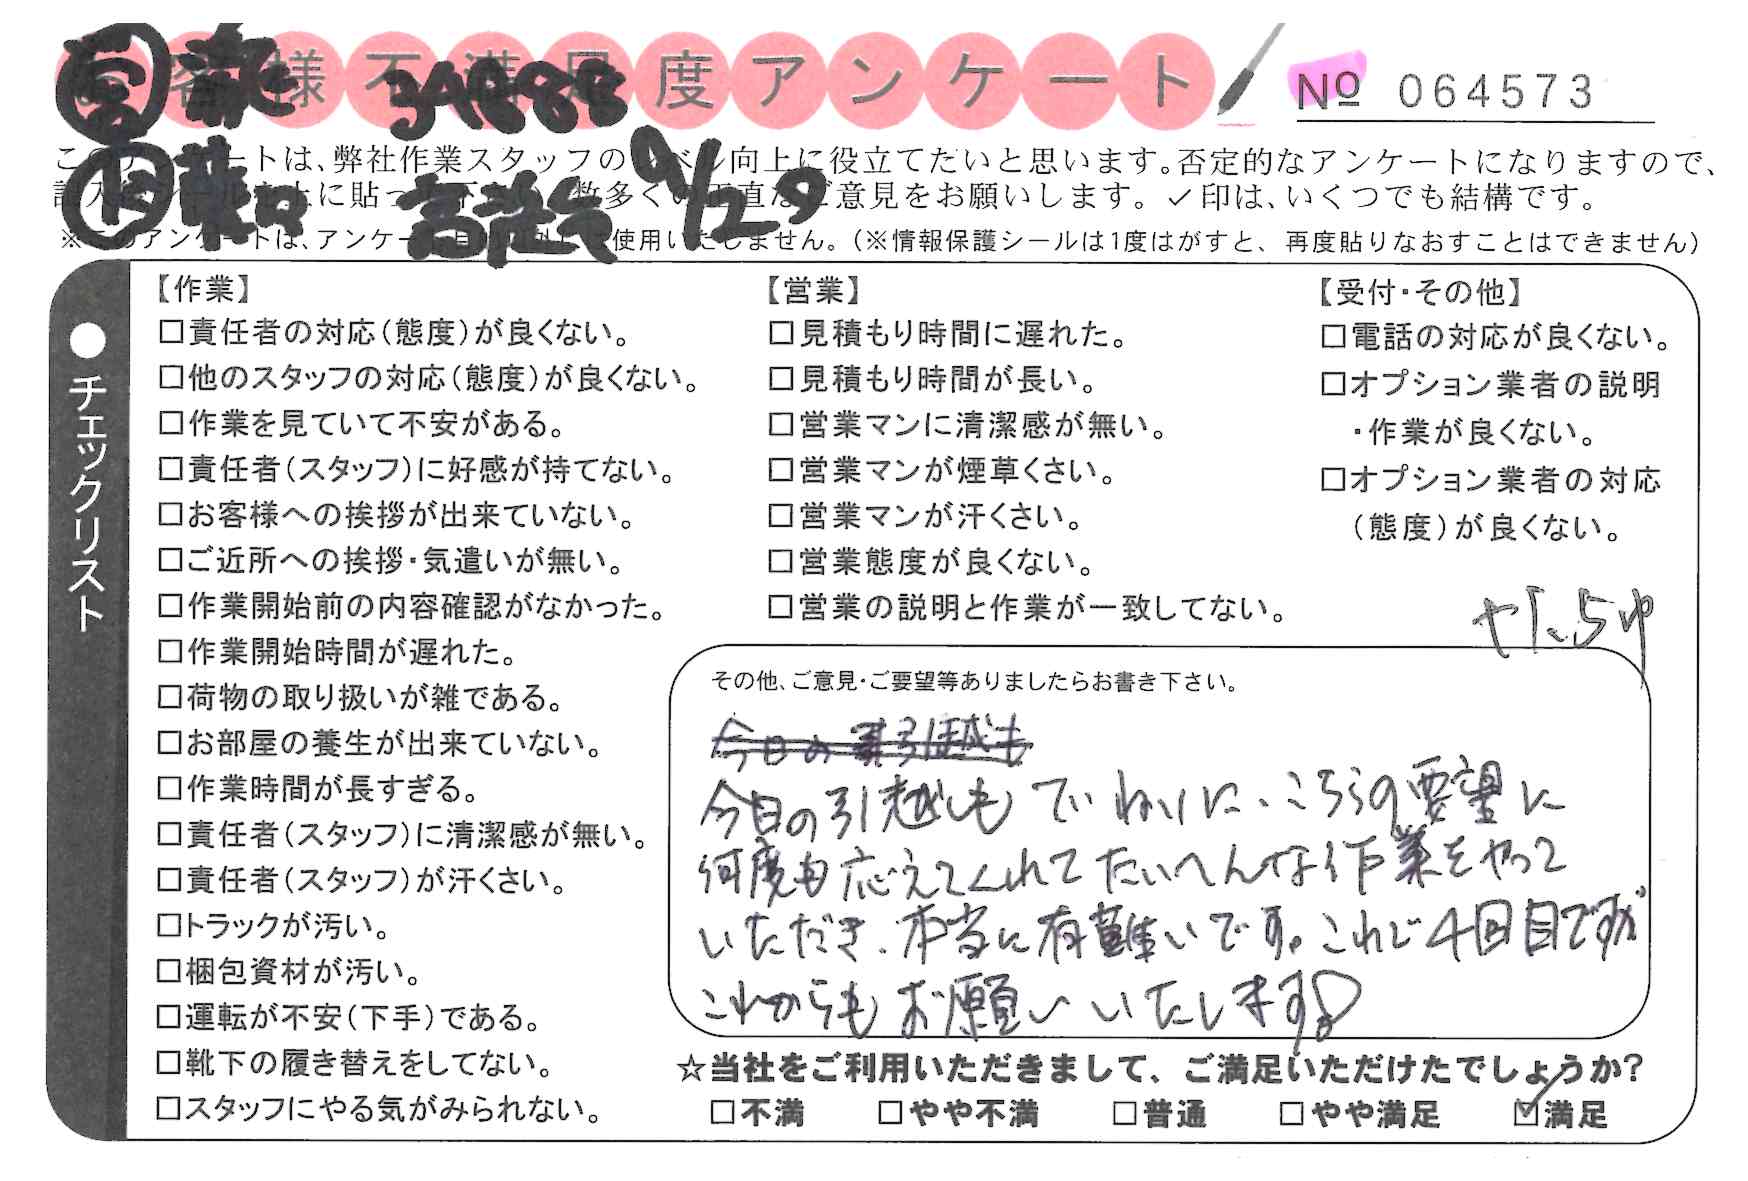 お客様不満足度アンケート
No 064573
9/29
このアンケートは、弊社作業スタッフのレベル向上に役立てたいと思います。否定的なアンケートになりますので、
記入後シールを上に貼って下さい。数多くの正直なご意見をお願いします。✓印は、いくつでも結構です。
※このアンケートは、アンケート目的以外には使用いたしません。(※情報保護シールは1度はがすと、再度貼りなおすことはできません)
●チェックリスト
【作業】
□責任者の対応(態度)が良くない。
□他のスタッフの対応(態度)が良くない。
□作業を見ていて不安がある。
□責任者(スタッフ)に好感が持てない。
□お客様への挨拶が出来ていない。
□ご近所への挨拶・気遣いが無い。
□作業開始前の内容確認がなかった。
□作業開始時間が遅れた。
□荷物の取り扱いが雑である。
□お部屋の養生が出来ていない。
□作業時間が長すぎる。
□責任者(スタッフ)に清潔感が無い。
□責任者(スタッフ)が汗くさい。
□トラックが汚い。
□梱包資材が汚い。
□運転が不安(下手)である。
□靴下の履き替えをしてない。
□スタッフにやる気がみられない。
【営業】
□見積もり時間に遅れた。
□見積もり時間が長い。
□営業マンに清潔感が無い。
□営業マンが煙草くさい。
□営業マンが汗くさい。
□営業態度が良くない。
□営業の説明と作業が一致してない。
【受付・その他】
□電話の対応が良くない。
□オプション業者の説明
・作業が良くない。
□オプション業者の対応
(態度)が良くない。
その他、ご意見・ご要望等ありましたらお書き下さい。
今日の引越も
今日の引越しもていねいに、こちらの要望に
何度も応えてくれてたいへんな作業をやって
いただき、本当に有難いです。これで4回目ですが
これからもお願いいたします。
☆当社をご利用いただきまして、ご満足いただけたでしょうか?
□不満 □やや不満 □普通 □やや満足 ☑満足